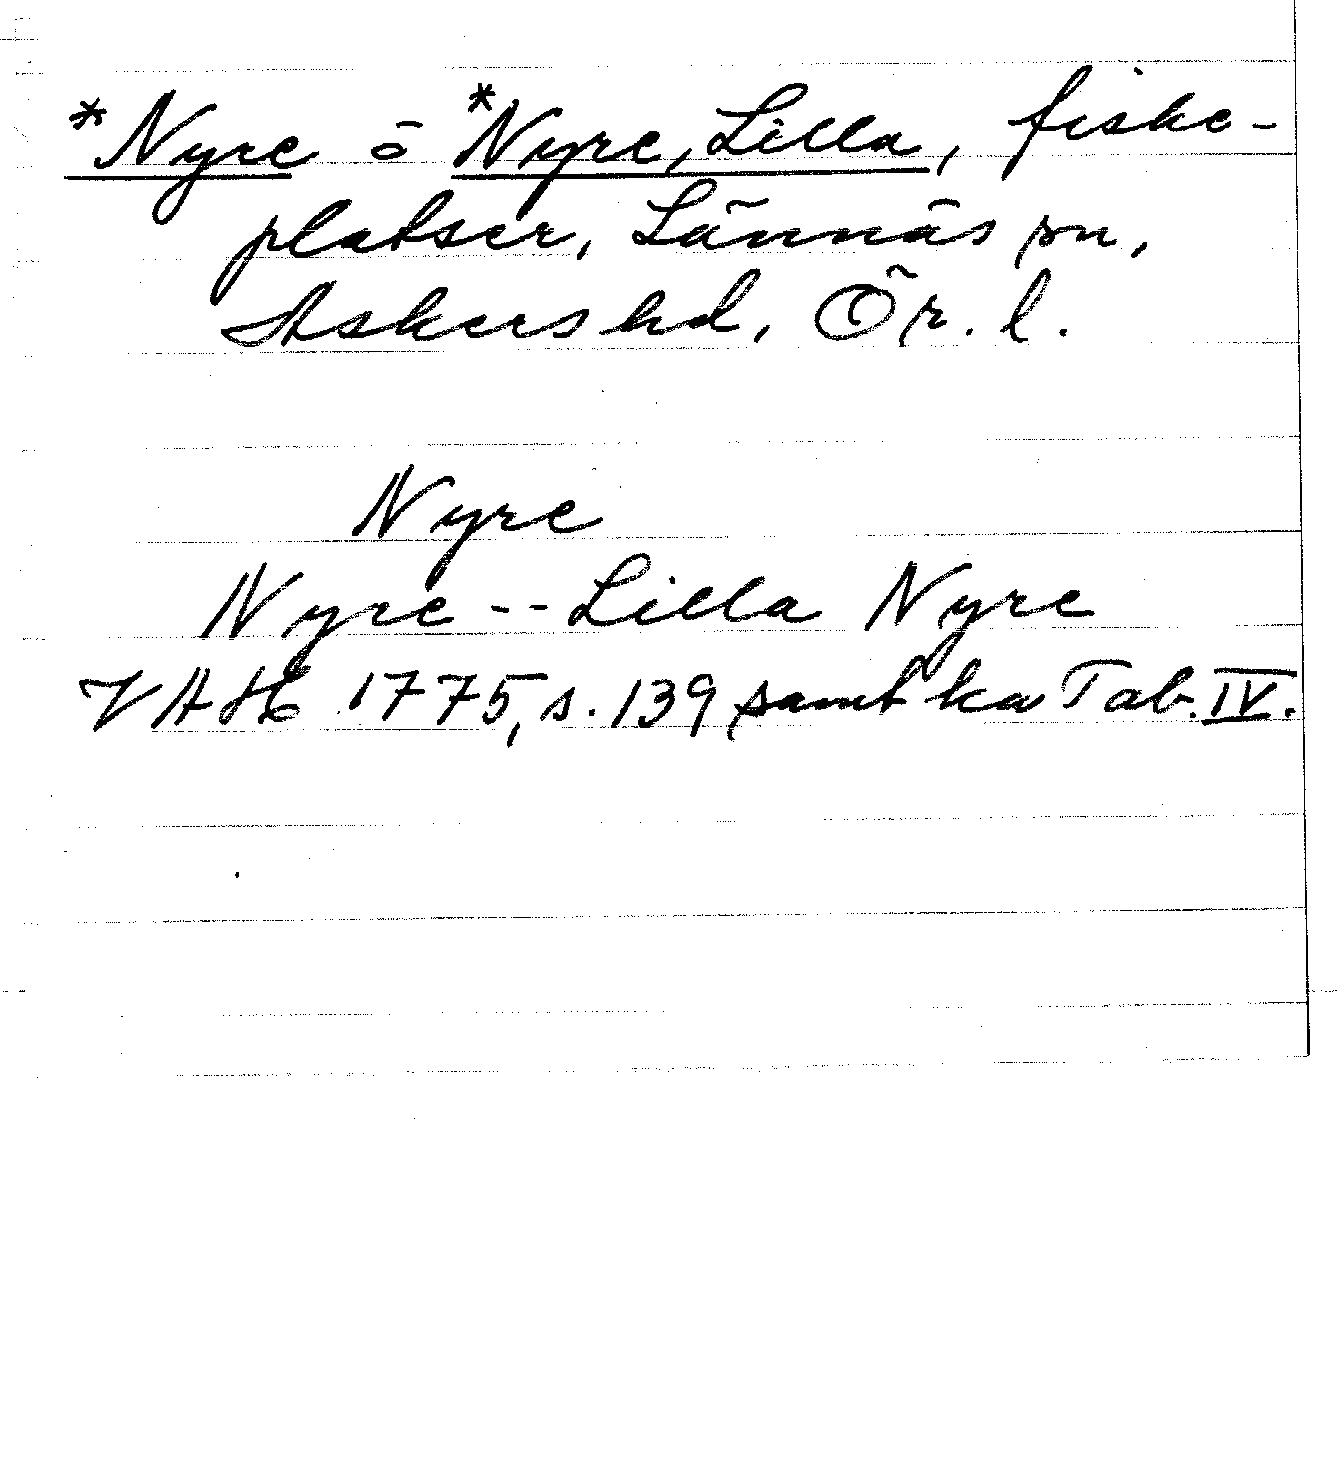 *Nyre o *Nyre, Lilla, fiske-
platser, Lännäs sn,
Askers hd, Ör. l.
Nyre
Nyre -- Lilla Nyre
VAH 1775, s. 139 samt ka Tab. IV.